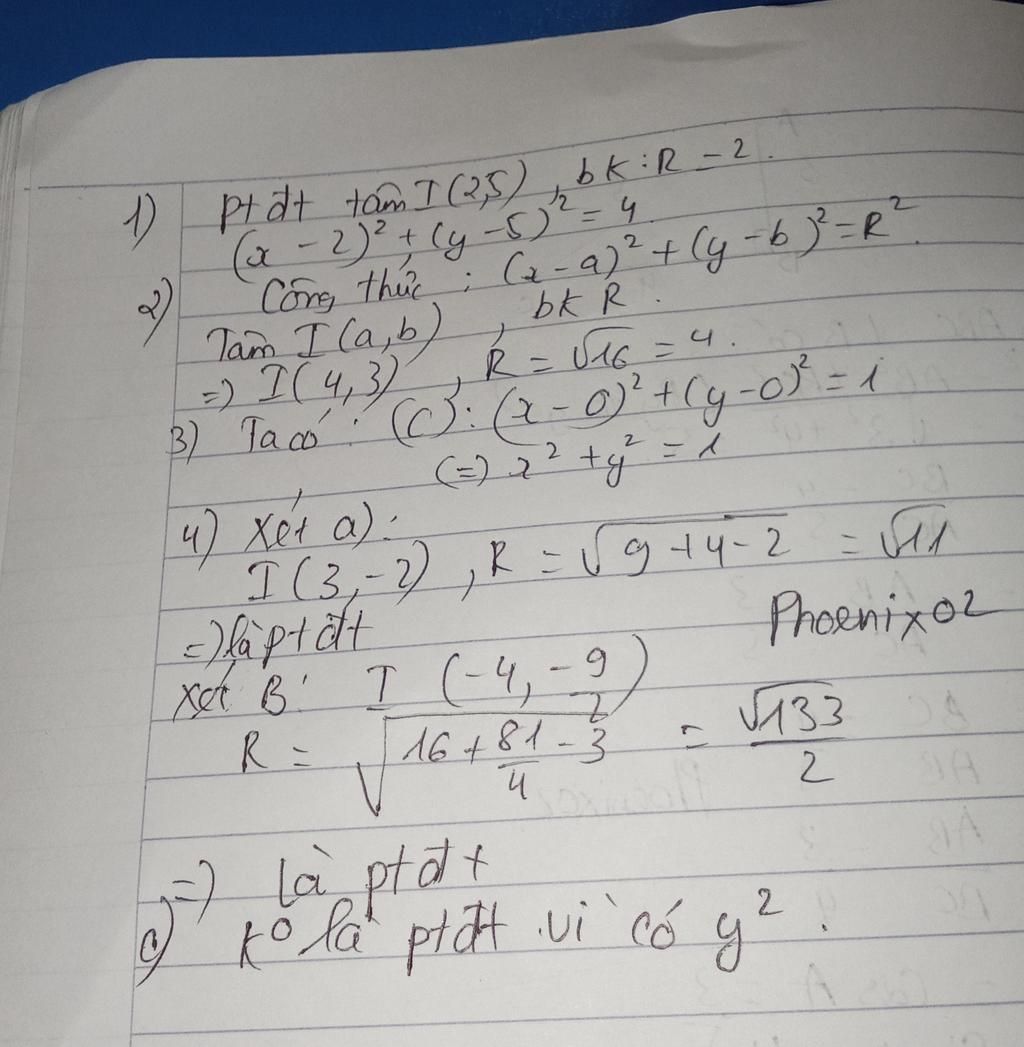 1) ptđt tâm I(2,5), bk: R = 2.
(x - 2)² + (y - 5)² = 4
2) Công thức : (x - a)² + (y - b)² = R².
Tâm I(a,b), bk R.
=) I(4,3), R = √16 = 4.
3) Ta có : (C): (x - 0)² + (y - 0)² = 1
(=) x² + y² = 1
4) Xét a):
I(3,-2), R = √(9 + 4 - 2) = √11
=) là ptđt
Phoenix02
Xét B: I (-4, -9/2)
R = √(16 + 81/4 - 3) = √133/2
=) là ptđt
c) k° là ptđt vì có y².